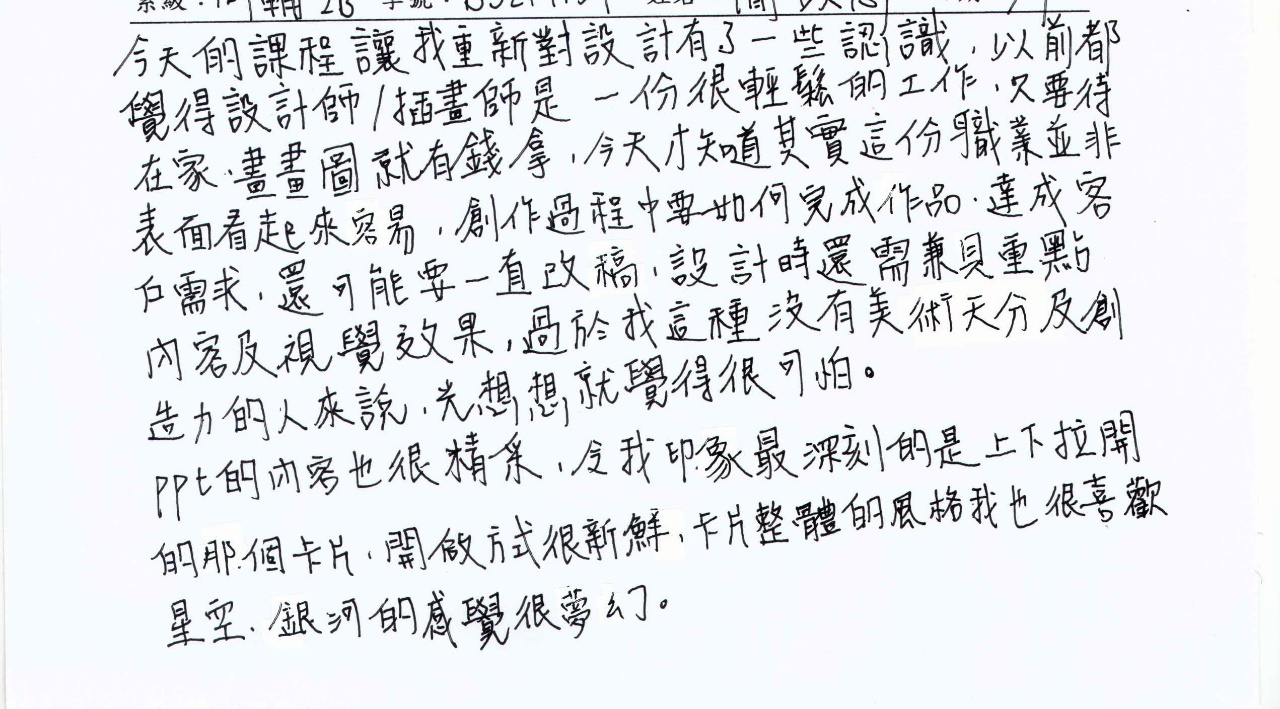 今天的課程讓我重新對設計有了一些認識，以前都
覺得設計師/插畫師是一份很輕鬆的工作，只要待
在家，畫畫圖就有錢拿，今天才知道其實這份職業並非
表面看起來容易，創作過程中要如何完成作品，達成客
戶需求，還可能要一直改稿，設計時還需兼具重點
內容及視覺效果，過於我這種沒有美術天分及創
造力的人來說，光想想就覺得很可怕。
ppt的內容也很精采，令我印象最深刻的是上下拉開
的那個卡片，開啟方式很新鮮，卡片整體的風格我也很喜歡
星空、銀河的感覺很夢幻。